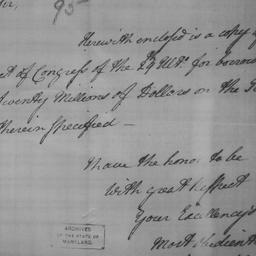 Sir,
95
Herewith enclosed is a copy of
Act of Congress of the 29 Ulto. for borrow
twenty Millions of Dollars on the
therein Specified —
I have the honor to be
With great Respect
Your Excellency's
Most Obedient
ARCHIVES
OF THE STATE OF
MARYLAND.